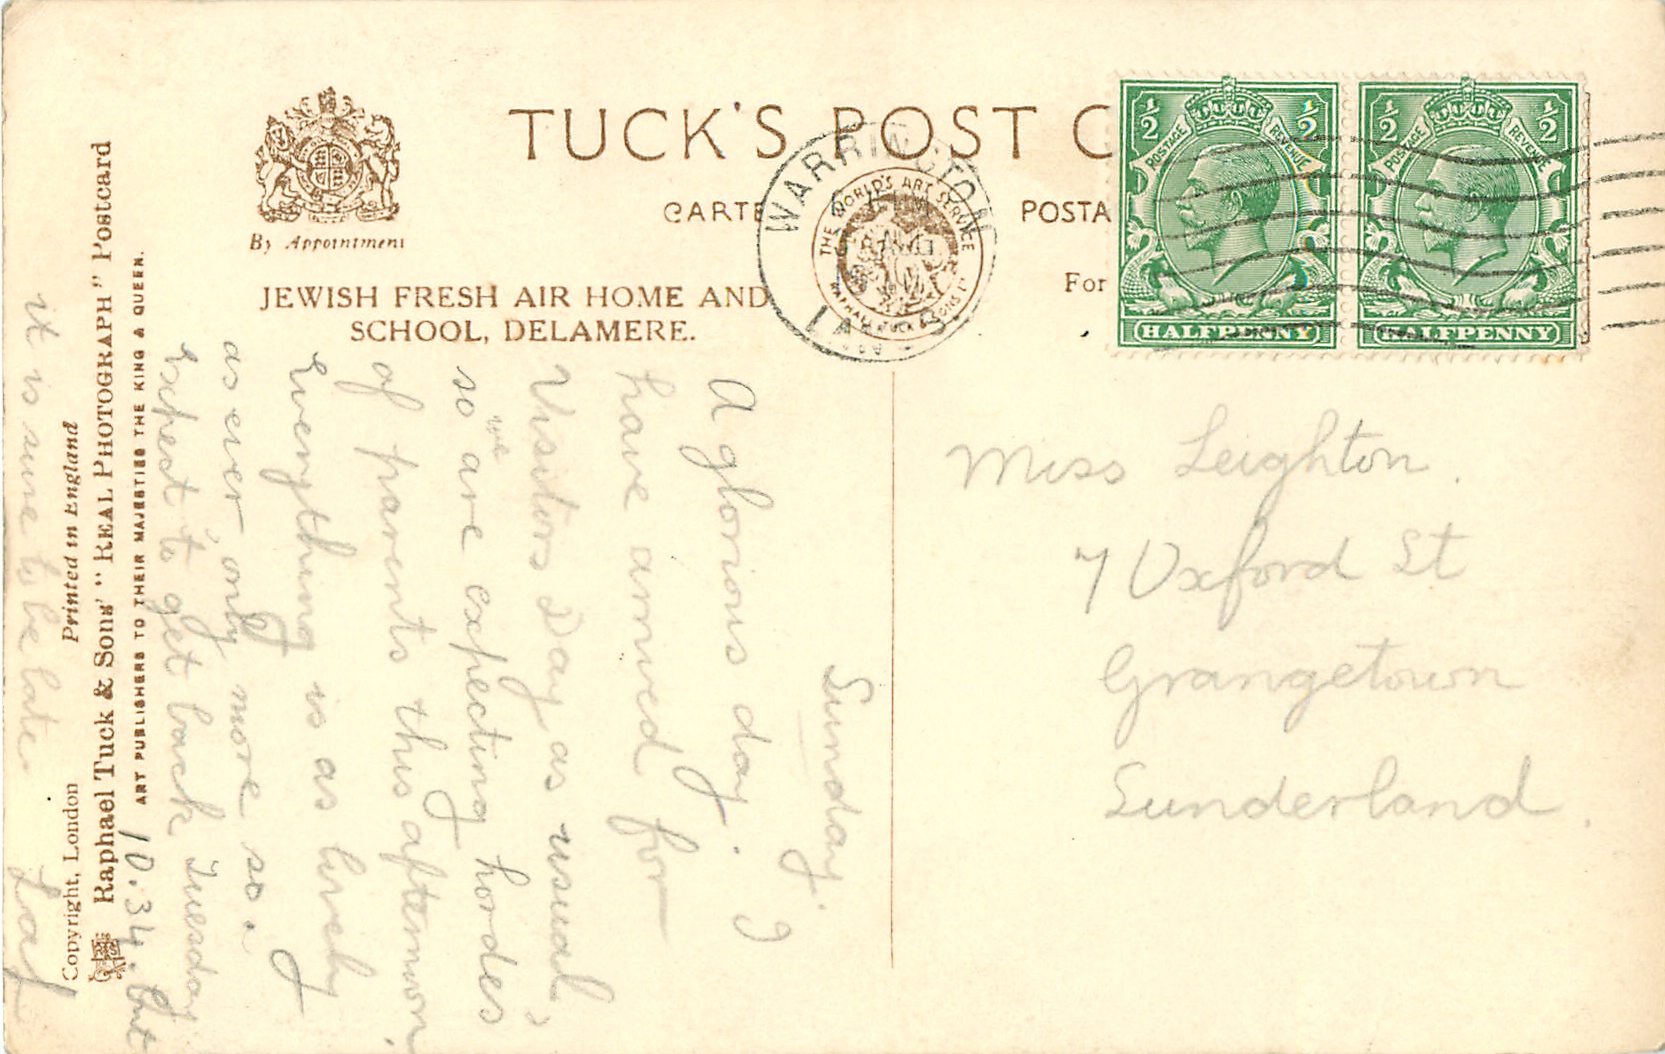 TUCK'S POST C
CARTE POSTA
By Appointment
For
JEWISH FRESH AIR HOME AND
SCHOOL, DELAMERE.
WARRINGTON
LANCS
THE WORLD'S ART SERVICE
RAPHAEL TUCK & SONS LD
½ ½
POSTAGE REVENUE
HALFPENNY
½ ½
POSTAGE REVENUE
HALFPENNY
Miss Leighton.
7 Oxford St
Grangetown
Sunderland.
Sunday.
A glorious day. I
have arrived for
Visitors Day as usual,
so we are expecting hordes
of parents this afternoon.
Everything is as lively
as ever, only more so. I
expect to get back Tuesday
10.34. but
it is sure to be late
ART PUBLISHERS TO THEIR MAJESTIES THE KING & QUEEN.
Raphael Tuck & Sons' "REAL PHOTOGRAPH" Postcard
Copyright, London Printed in England